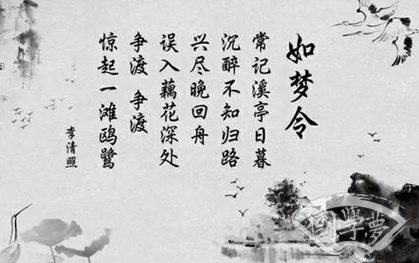 如梦令
常记溪亭日暮
沉醉不知归路
兴尽晚回舟
误入藕花深处
争渡 争渡
惊起一滩鸥鹭
李清照
国学梦